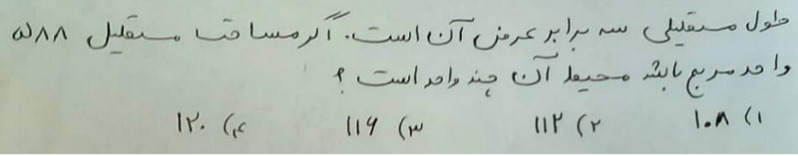 طول مستقیلی سه برابر عرض آن است. اگر مساحت مستقیل ۵۸۸
واحد مربع باشد محیط آن چند واحد است؟
۱) ۱۰۸ ۲) ۱۱۲ ۳) ۱۱۶ ۴) ۱۲۰